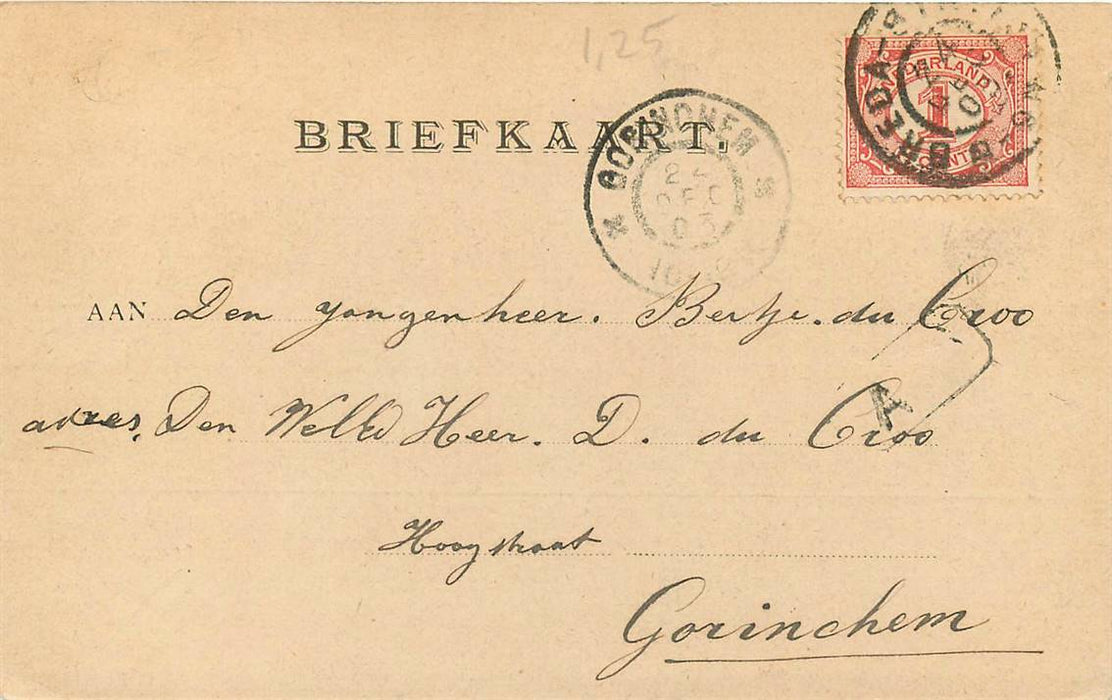 1,25
BRIEFKAART.
GORINCHEM
24
DEC
03
NEDERLAND
1
CENT
BREDA
AAN Den jongenheer. Bertje. du Croo
adres. Den WelEd Heer. D. du Croo
A
Hoogstraat
Gorinchem